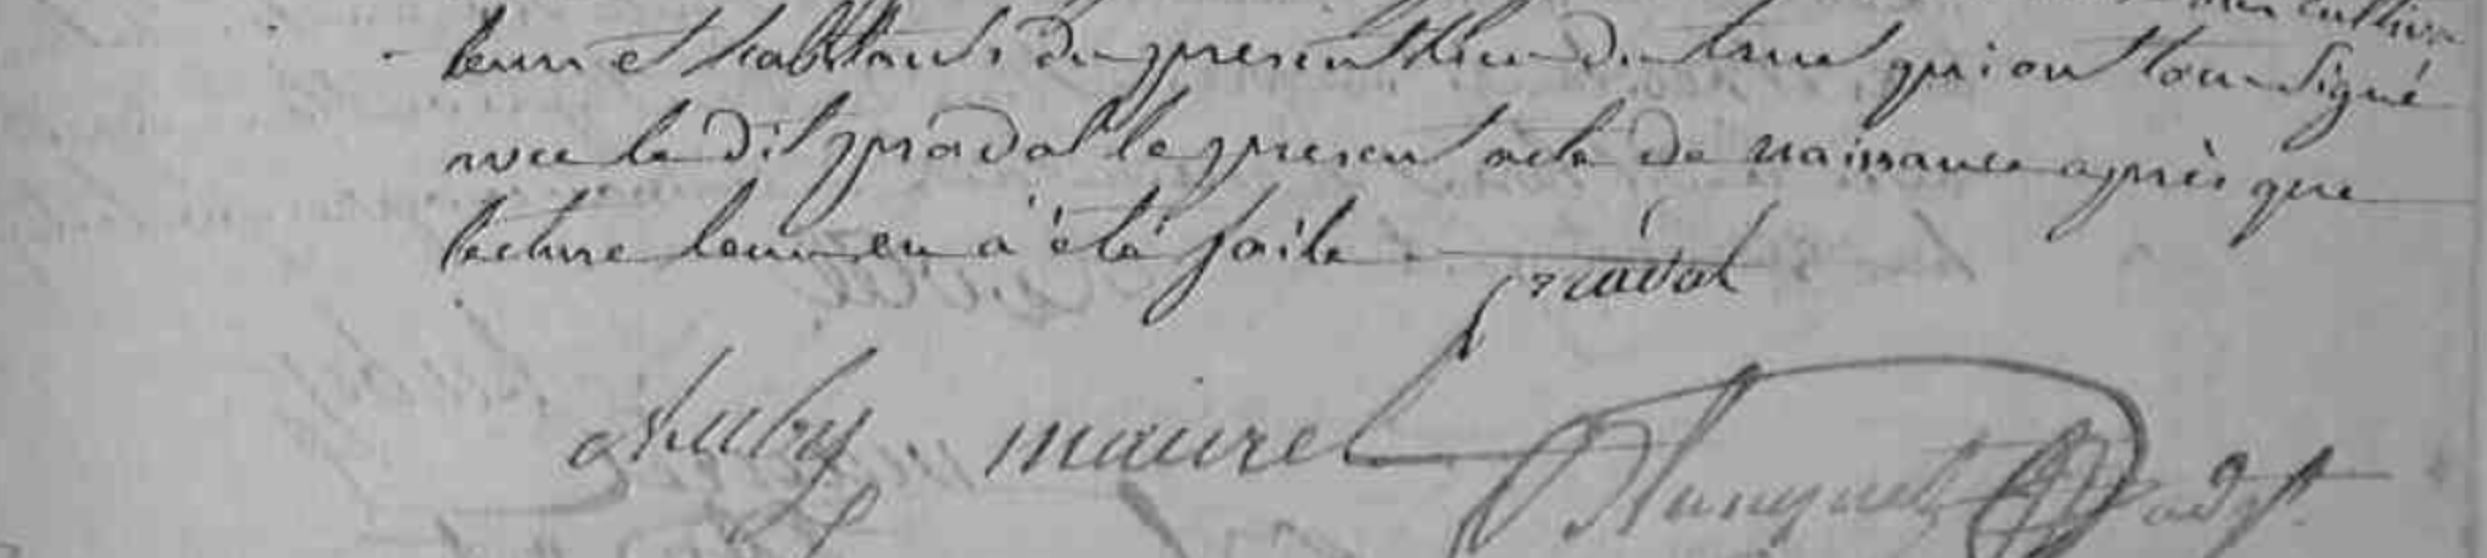 cultiva
teurs et habitants du present lieu du qui ont tous signé
avec le dit pradal le present acte de naissance après que
lecture leur en à été faite
pradal
maurel